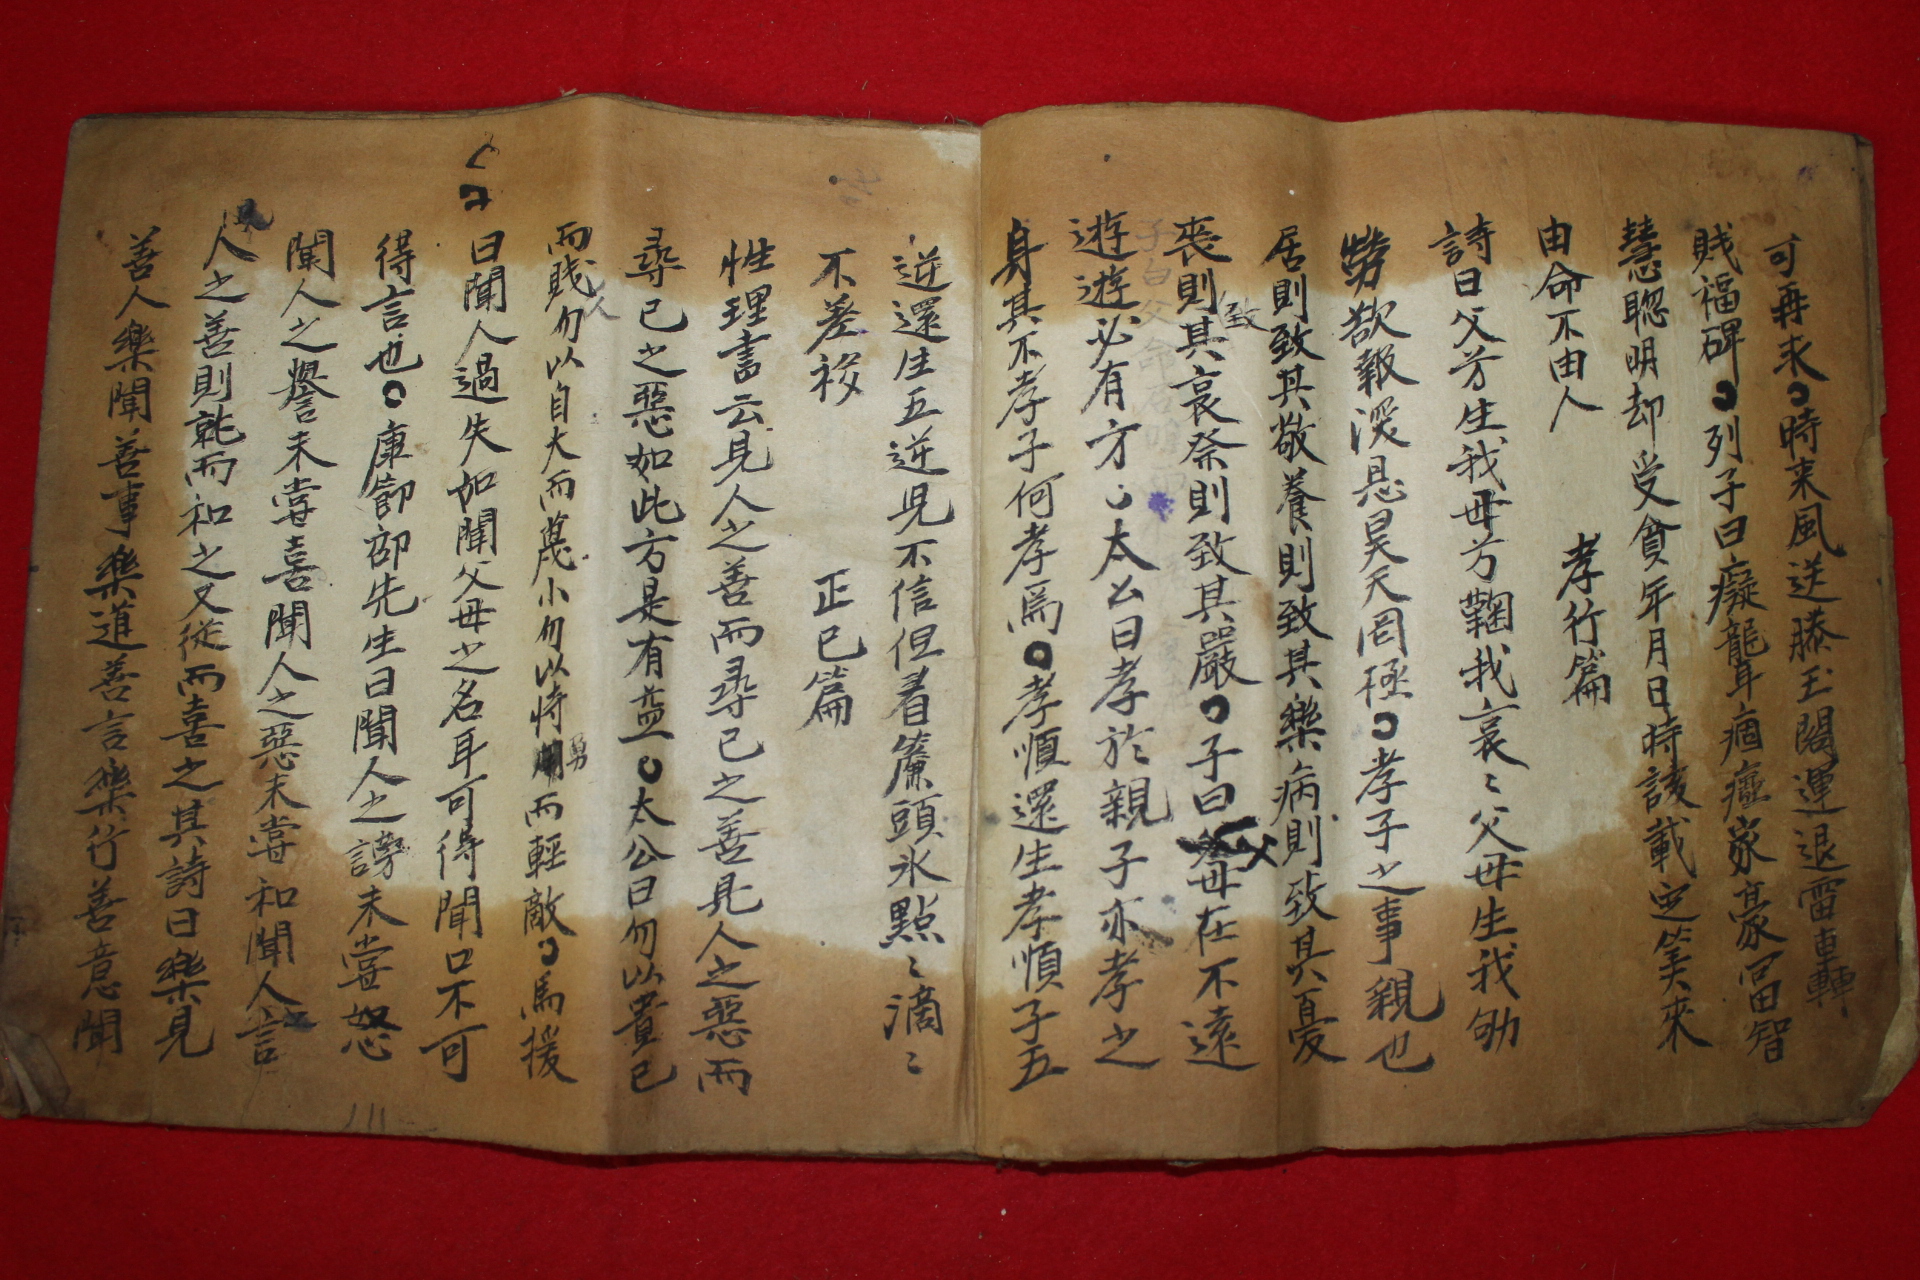 可再求○時来風送滕王閣運退雷轟
賎福碑○列子曰癡聾痼瘂家豪富智
慧聡明却受貧年月日時該載定笑來
由命不由人
孝行篇
詩曰父兮生我母兮鞠我哀〻父母生我劬
勞欲報深恩昊天罔極○孝子之事親也
居則致其敬養則致其樂病則致其憂
喪則致其哀祭則致其嚴○子曰父母在不遠
遊遊必有方○太公曰孝於親子亦孝之
身其不孝子何孝爲○孝順還生孝順子五
逆還生五逆児不信但看簷頭水點〻滴〻
不差移
正己篇
性理書云見人之善而尋己之善見人之惡而
尋己之惡如此方是有益○太公曰勿以貴己
而賎人勿以自大而蔑小勿以恃勇而輕敵○馬援
曰聞人過失如聞父母之名耳可得聞口不可
得言也○康節邵先生曰聞人之謗未嘗怒
聞人之譽未嘗喜聞人之惡未嘗和聞人言
人之善則就而和之又從而喜之其詩曰樂見
善人樂聞善事樂道善言樂行善意聞